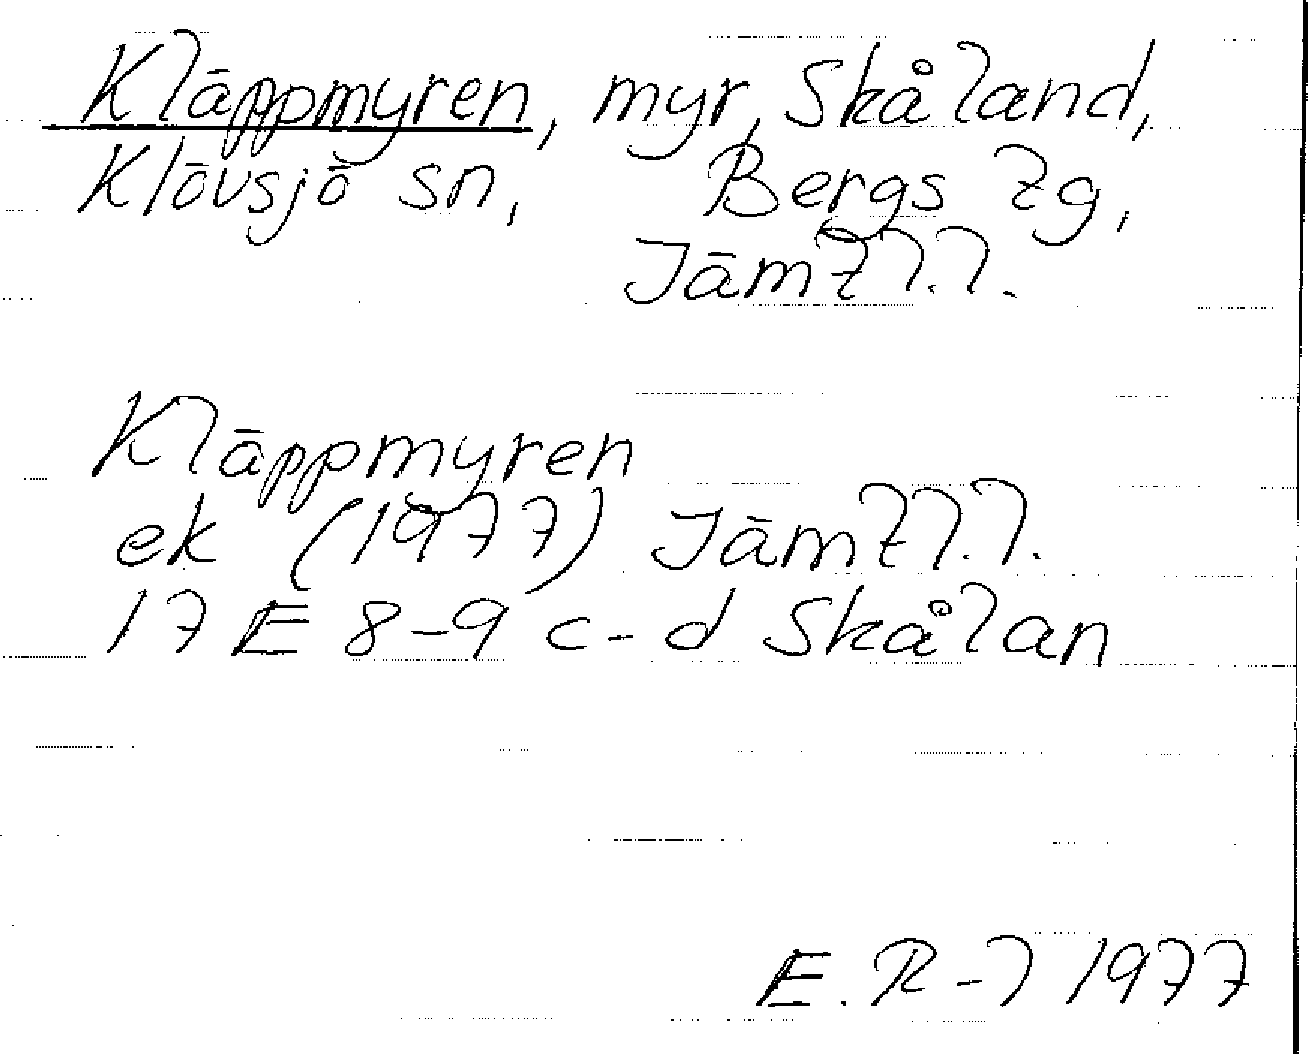 Kläppmyren, myr, Skåland,
Klövsjö sn, Bergs tg,
Jämtl.l.
Kläppmyren
ek (1977) Jämtl.l.
17 E 8-9 c-d Skålan
E. R-l 1977